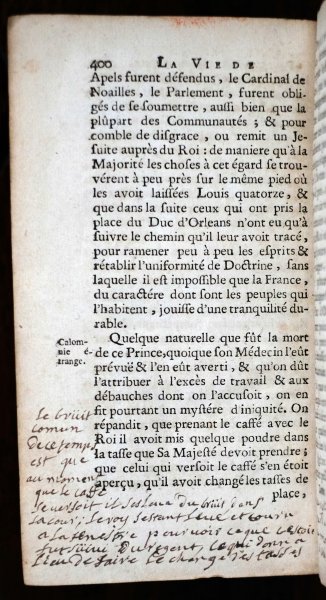 400 LA VIE DE
Apels furent défendus, le Cardinal de
Noailles, le Parlement, furent obli-
gés de se soumettre, aussi bien que la
plûpart des Communautés ; & pour
comble de disgrace, on remit un Je-
suite auprès du Roi : de maniere qu'à la
Majorité les choses à cet égard se trou-
vérent à peu près sur le même pied où
les avoit laissées Louis quatorze, &
que dans la suite ceux qui ont pris la
place du Duc d'Orleans n'ont eu qu'à
suivre le chemin qu'il leur avoit tracé,
pour ramener peu à peu les esprits &
rétablir l'uniformité de Doctrine, sans
laquelle il est impossible que la France,
du caractére dont sont les peuples qui
l'habitent, jouïsse d'une tranquilité du-
rable.
Calom-
nie é-
trange.
Quelque naturelle que fût la mort
de ce Prince, quoique son Médecin l'eût
prévuë & l'en eût averti, & qu'on dût
l'attribuer à l'excés de travail & aux
débauches dont on l'accusoit, on en
fit pourtant un mystére d'iniquité. On
répandit, que prenant le caffé avec le
Roi il avoit mis quelque poudre dans
la tasse que Sa Majesté devoit prendre ;
que celui qui versoit le caffé s'en étoit
aperçu, qu'il avoit changé les tasses de
place,
Le bruit
comun
de ce temps
est que
au moment
que le caffé
se versoit il s'esleva du bruit dans
la cour; Le roy s'estant levé et couru
a la fenestre pour voir ce que c'estoit
fut suivi du regent, ce qui donna
Lieu de faire le change des tasses